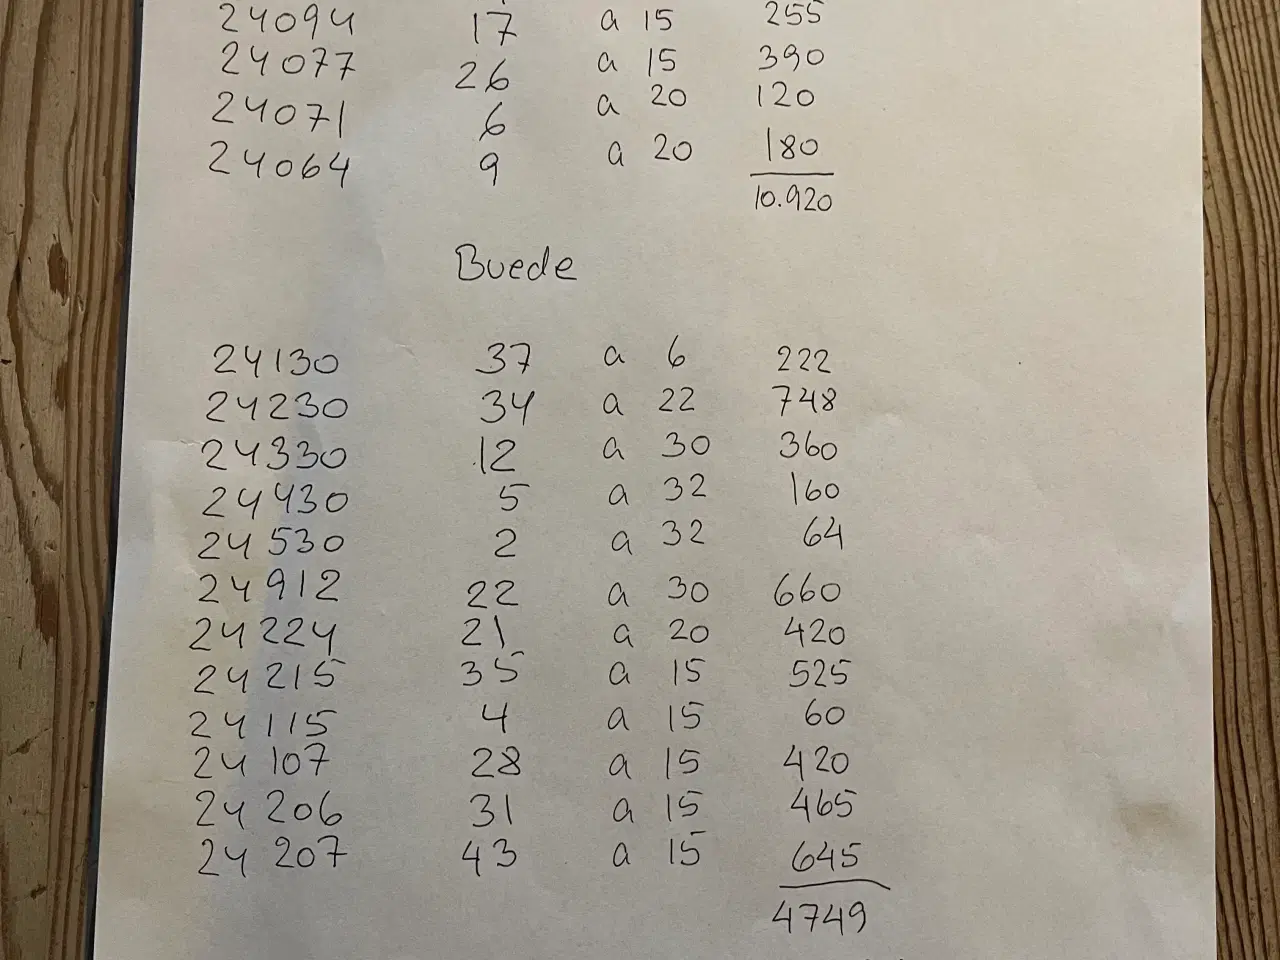 24094 17 a 15 255
24077 26 a 15 390
24071 6 a 20 120
24064 9 a 20 180
10.920
Buede
24130 37 a 6 222
24230 34 a 22 748
24330 12 a 30 360
24430 5 a 32 160
24530 2 a 32 64
24912 22 a 30 660
24224 21 a 20 420
24215 35 a 15 525
24115 4 a 15 60
24107 28 a 15 420
24206 31 a 15 465
24207 43 a 15 645
4749